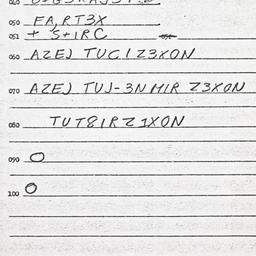 050 FA, RT3X
051 + S+1RC
060 AZEJ TUC1Z3XON
070 AZEJ TUJ-3NMIR Z3XON
080 TUT81RZ1XON
090 O
100 O